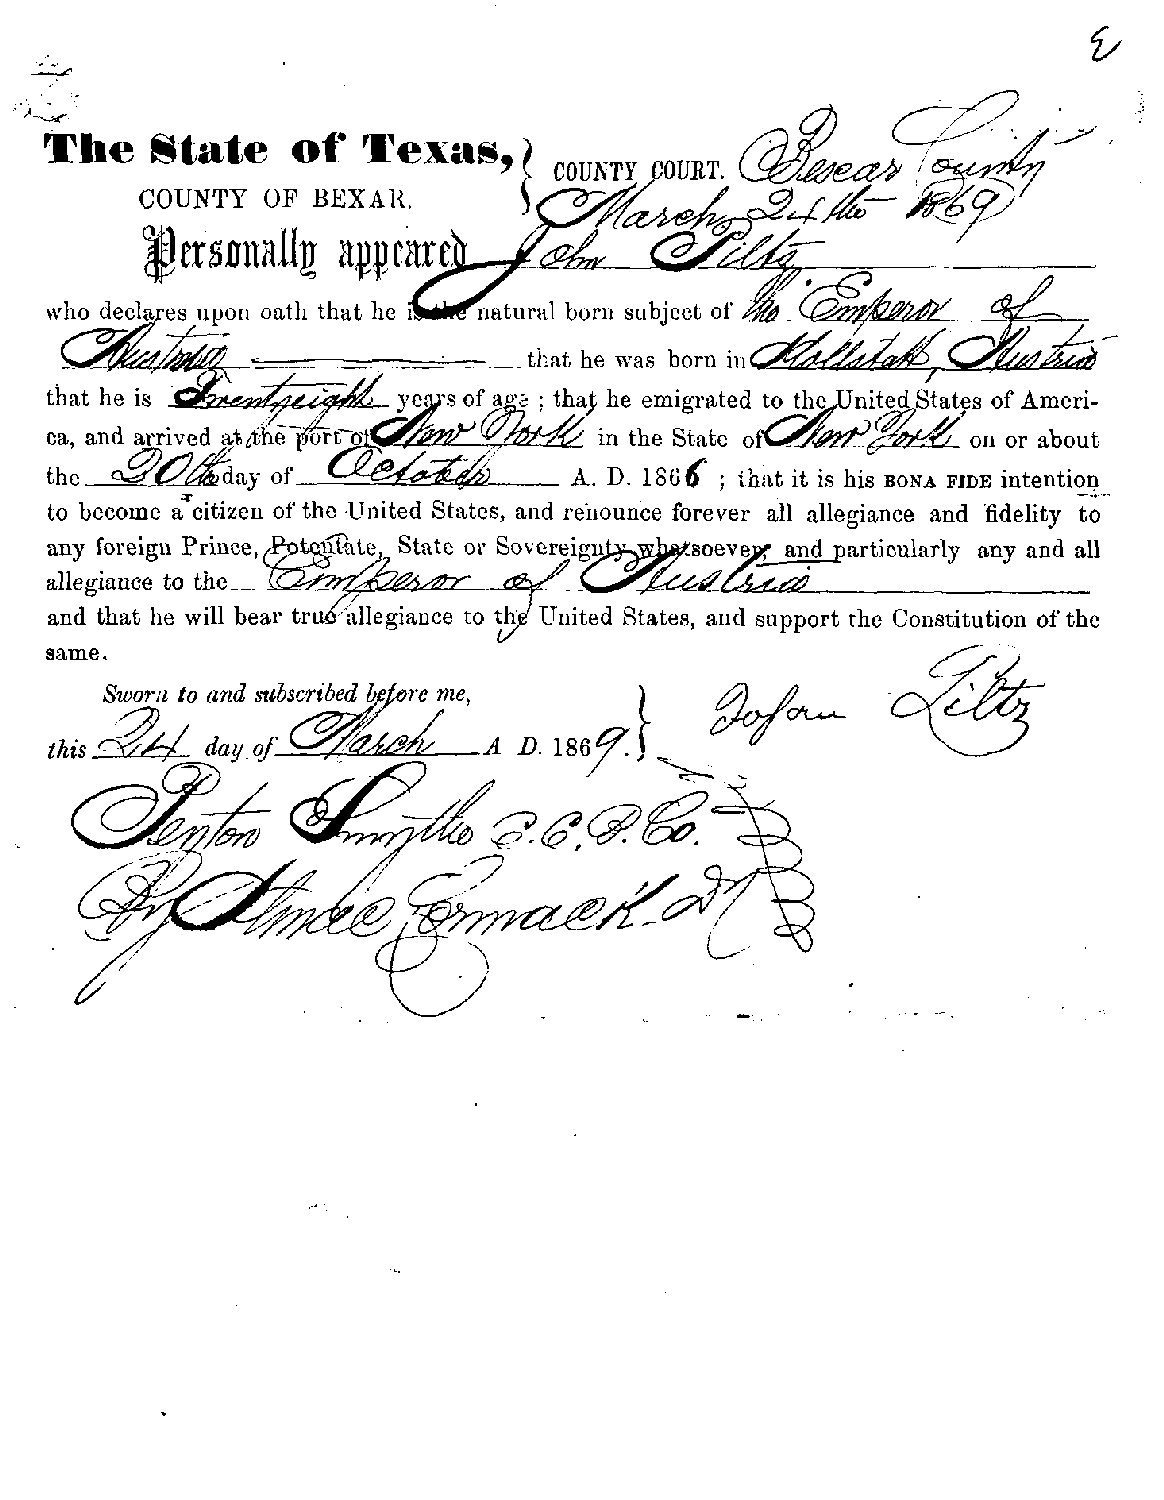 The State of Texas, } COUNTY COURT. Bexar County
COUNTY OF BEXAR. March 24th 1869
Personally appeared John Piltz
who declares upon oath that he is the natural born subject of the Emperor of
Austria that he was born in Austria
that he is Twentyeight years of age ; that he emigrated to the United States of Ameri-
ca, and arrived at the port of New York in the State of New York on or about
the 20th day of October A. D. 1866 ; that it is his BONA FIDE intention
to become a citizen of the United States, and renounce forever all allegiance and fidelity to
any foreign Prince, Potentate, State or Sovereignty whatsoever, and particularly any and all
allegiance to the Emperor of Austria
and that he will bear true allegiance to the United States, and support the Constitution of the
same.
Sworn to and subscribed before me, } Johan Piltz
this 24 day of March A D. 1869.
Penton Smythe C. C. B. Co.
By